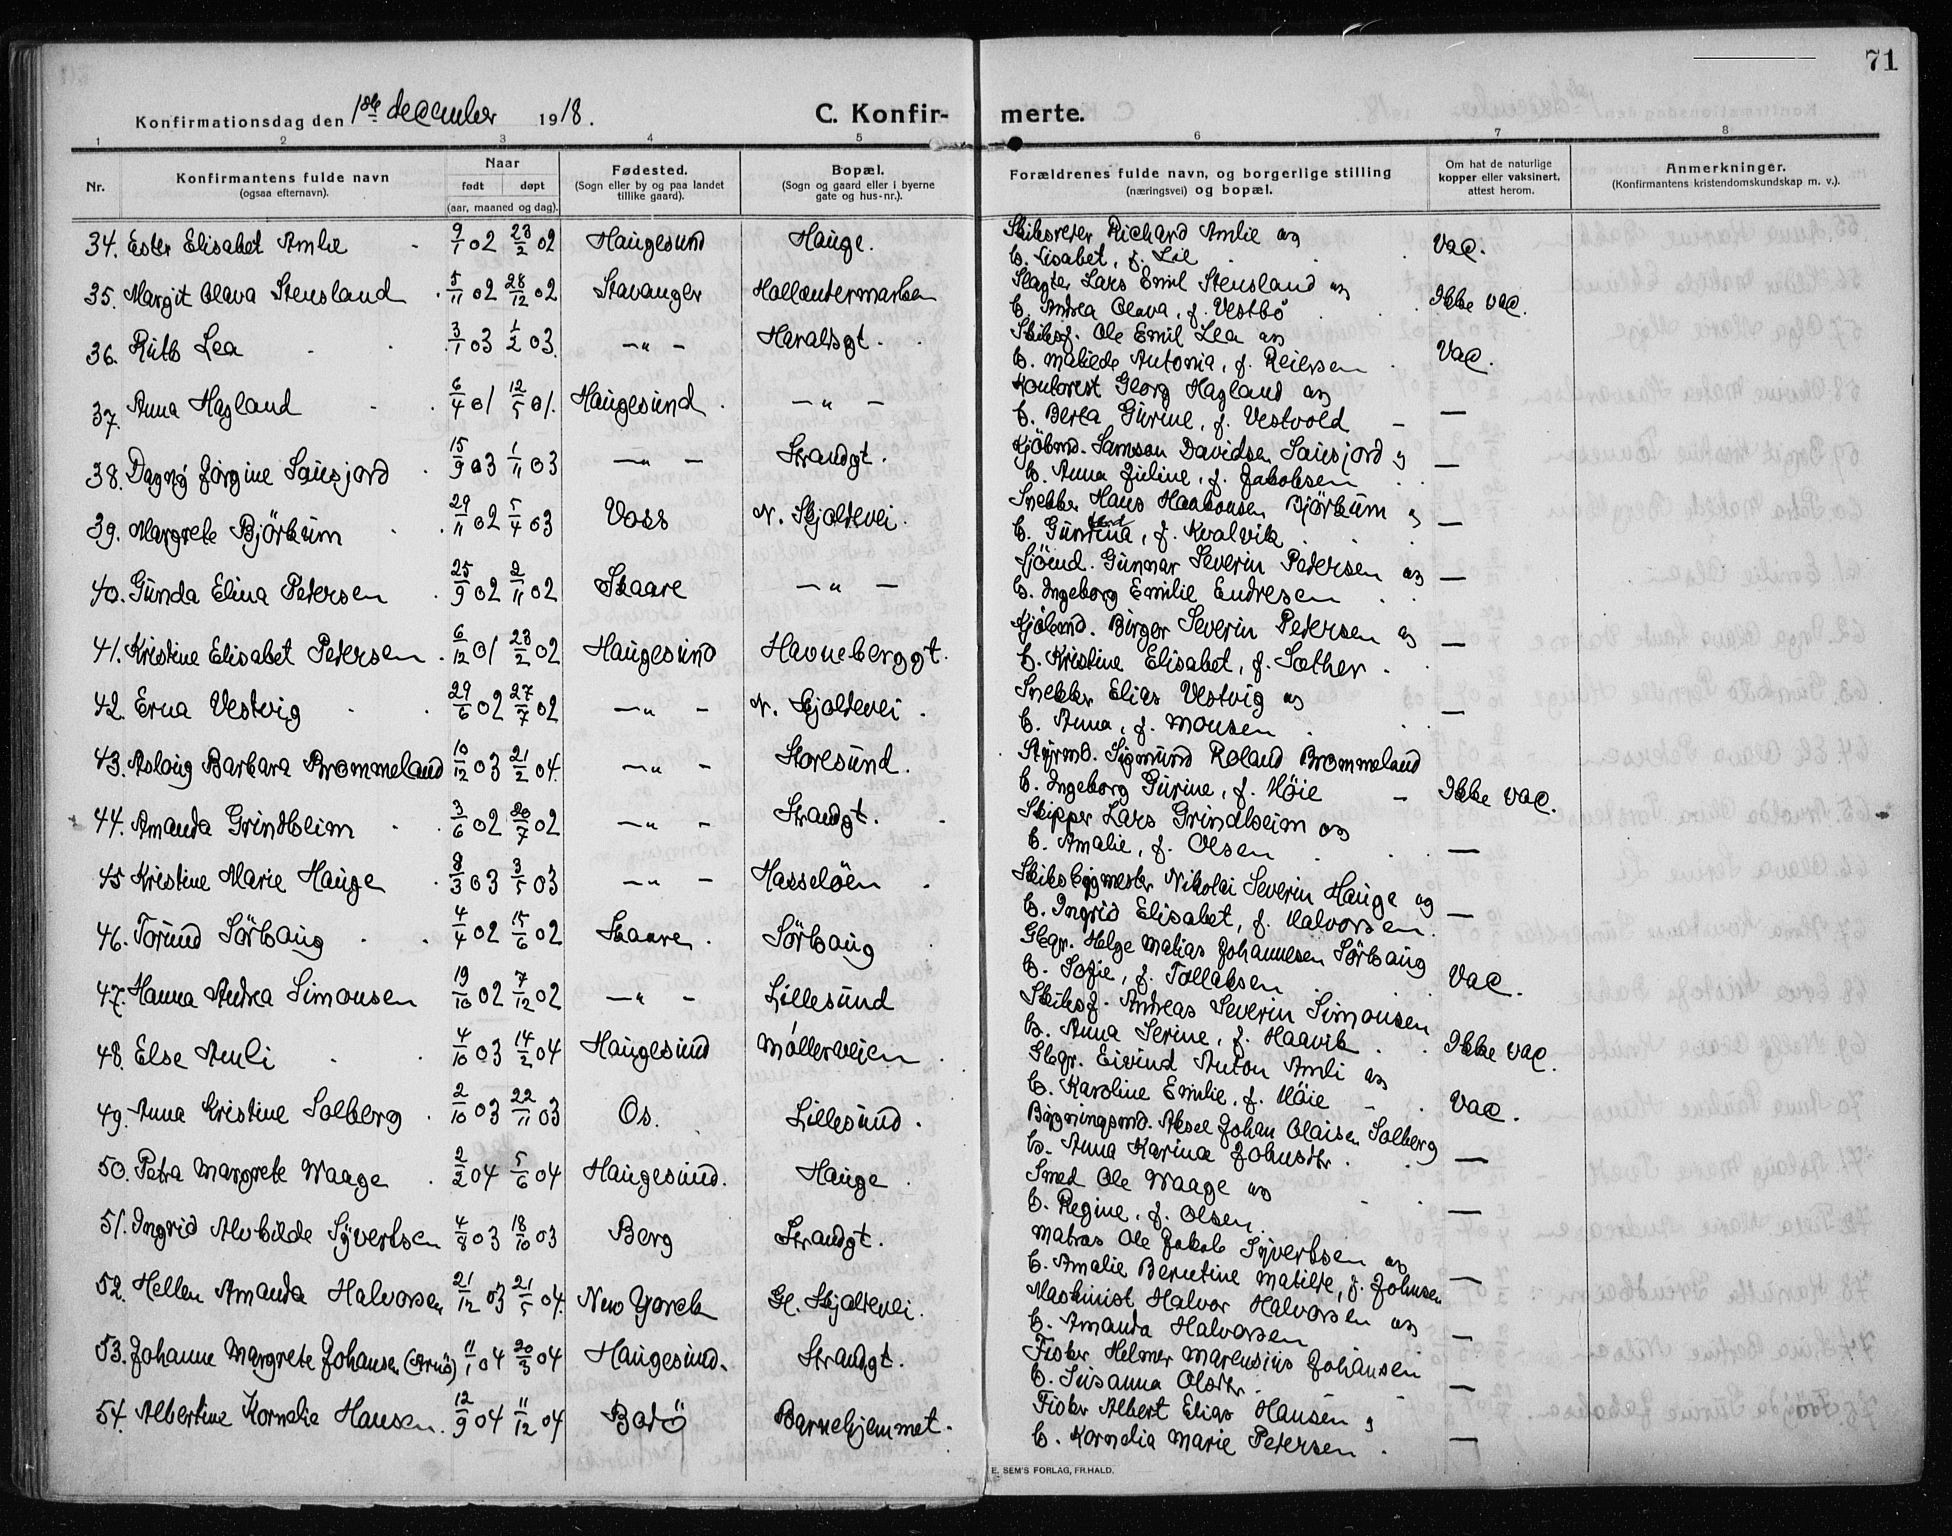 71
Konfirmationsdag den 1ste december 1918. C. Konfirmerte.
1 2 3 4 5 6 7 8
Nr. Konfirmantens fulde navn (ogsaa efternavn). Naar født døpt (aar, maaned og dag). Fødested. (Sogn eller by og paa landet tillike gaard). Bopæl. (Sogn og gaard eller i byerne gate og hus-nr.). Forældrenes fulde navn, og borgerlige stilling (næringsvei) og bopæl. Om hat de naturlige kopper eller vaksinert, attest herom. Anmerkninger. (Konfirmantens kristendomskundskap m. v.).
34. Ester Elisabet Amlie 9/1 02 23/2 02 Haugesund Hauge. Skibsreder Richard Amlie og Vac.
h. Lisabet, f. Lie
35. Margit Olava Stensland 5/11 02 28/12 02 Stavanger Hollendermarken Slagter Lars Emil Stensland og Ikke vac.
h. Andrea Olava, f. Vestbö
36. Ruth Lea 3/1 03 1/2 03. —„— Haraldsgt. Skibsf. Ole Emil Lea og Vac.
h. Matilde Antonia, f. Reiersen
37. Anna Hagland 6/4 01 12/5 01. Haugesund —„— Kontorist Georg Hagland og
h. Berta Gurine, f. Vestvold —
38. Dagny Jörgine Sausjord 15/9 03 1/11 03 —„— Strandgt. Kjöbmd. Samson Davidsen Sausjord og —
h. Anna Juline, f. Jakobsen
39. Margrete Björkum 29/11 02 5/4 03 Voss N. Skjoldevei. Snekker Hans Haakonsen Björkum og —
h. Guntina, f. Kvalvik
40. Gunda Elina Petersen 25/9 02 2/11 02 Skaare —„— Sjömd. Gunnar Severin Petersen og —
h. Ingeborg Emilie Endresen
41. Kristine Elisabet Petersen 6/12 01 23/2 02 Haugesund Havneberggt. Kjöbmd. Birger Severin Petersen og —
h. Kristine Elisabet, f. Sæther
42. Erna Vestvig 29/6 02 27/7 02 —„— N. Skjoldevei. Snekker Elias Vestvig og —
h. Anna, f. Monsen
43. Aslaug Barbara Brommeland 10/12 03 21/2 04. —„— Storesund. Styrmd. Sigmund Roland Brommeland
h. Ingeborg Gurine, f. Höie — Ikke vac.
44. Amanda Grindheim 3/6 02 20/7 02 —„— Strandgt. Skipper Lars Grindheim og
h. Amalie, f. Olsen —
45 Kristine Marie Hauge 8/3 03 3/5 03 —„— Hasselöen Skibsbygmester Nikolai Severin Hauge og —
h. Ingrid Elisabet, f. Halvorsen.
46. Torund Sörhaug 4/4 02 15/6 02 Skaare. Sörhaug Gbgr. Helge Matias Johannesen Sörhaug
h. Sofie, f. Tollaksen Vac.
47. Hanna Andrea Simonsen 19/10 02 7/12 02 —„— Lillesund Skibsf. Andreas Severin Simonsen
h. Anna Serine, f. Haavik Ikke vac.
48. Else Amli 4/10 03 14/2 04 Haugesund Møllerveien Gbgr. Eivind Anton Amli og
h. Karoline Emilie, f. Höie Vac.
49. Anna Kristine Solberg 2/10 03 22/11 03 Os. Lillesund. Bygningsmd. Aksel Johan Olaisen Solberg
h. Anna Karina Johnsdtr. —
50. Petra Margrete Waage 2/2 04 5/6 04 Haugesund. Hauge Smed Ole Waage og
h. Regine, f. Olsen. —
51. Ingrid Alvhilde Syvertsen 4/8 03 18/10 03 Berg Strandgt. Matros Ole Jakob Syvertsen og
h. Amalie Berntine Matilde, f. Johnsen —
52. Hellen Amanda Halvorsen 21/12 03 21/5 04. New Yorck Gl. Skjoldevei. Maskinist Halvor Halvorsen og
h. Amanda Halvorsen —
53. Johanne Margrete Johansen (Arnö) 11/1 04 20/3 04 Haugesund. Strandgt. Fisker Helmer Marensius Johansen
h. Susanna Olsdtr. —
54. Albertine Kornelie Hansen. 12/9 04 11/12 04 Bodö Barnehjemmet. Fisker Albert Elias Hansen og
h. Kornelia Marie Petersen. —
E. SEM'S FORLAG, FR.HALD.